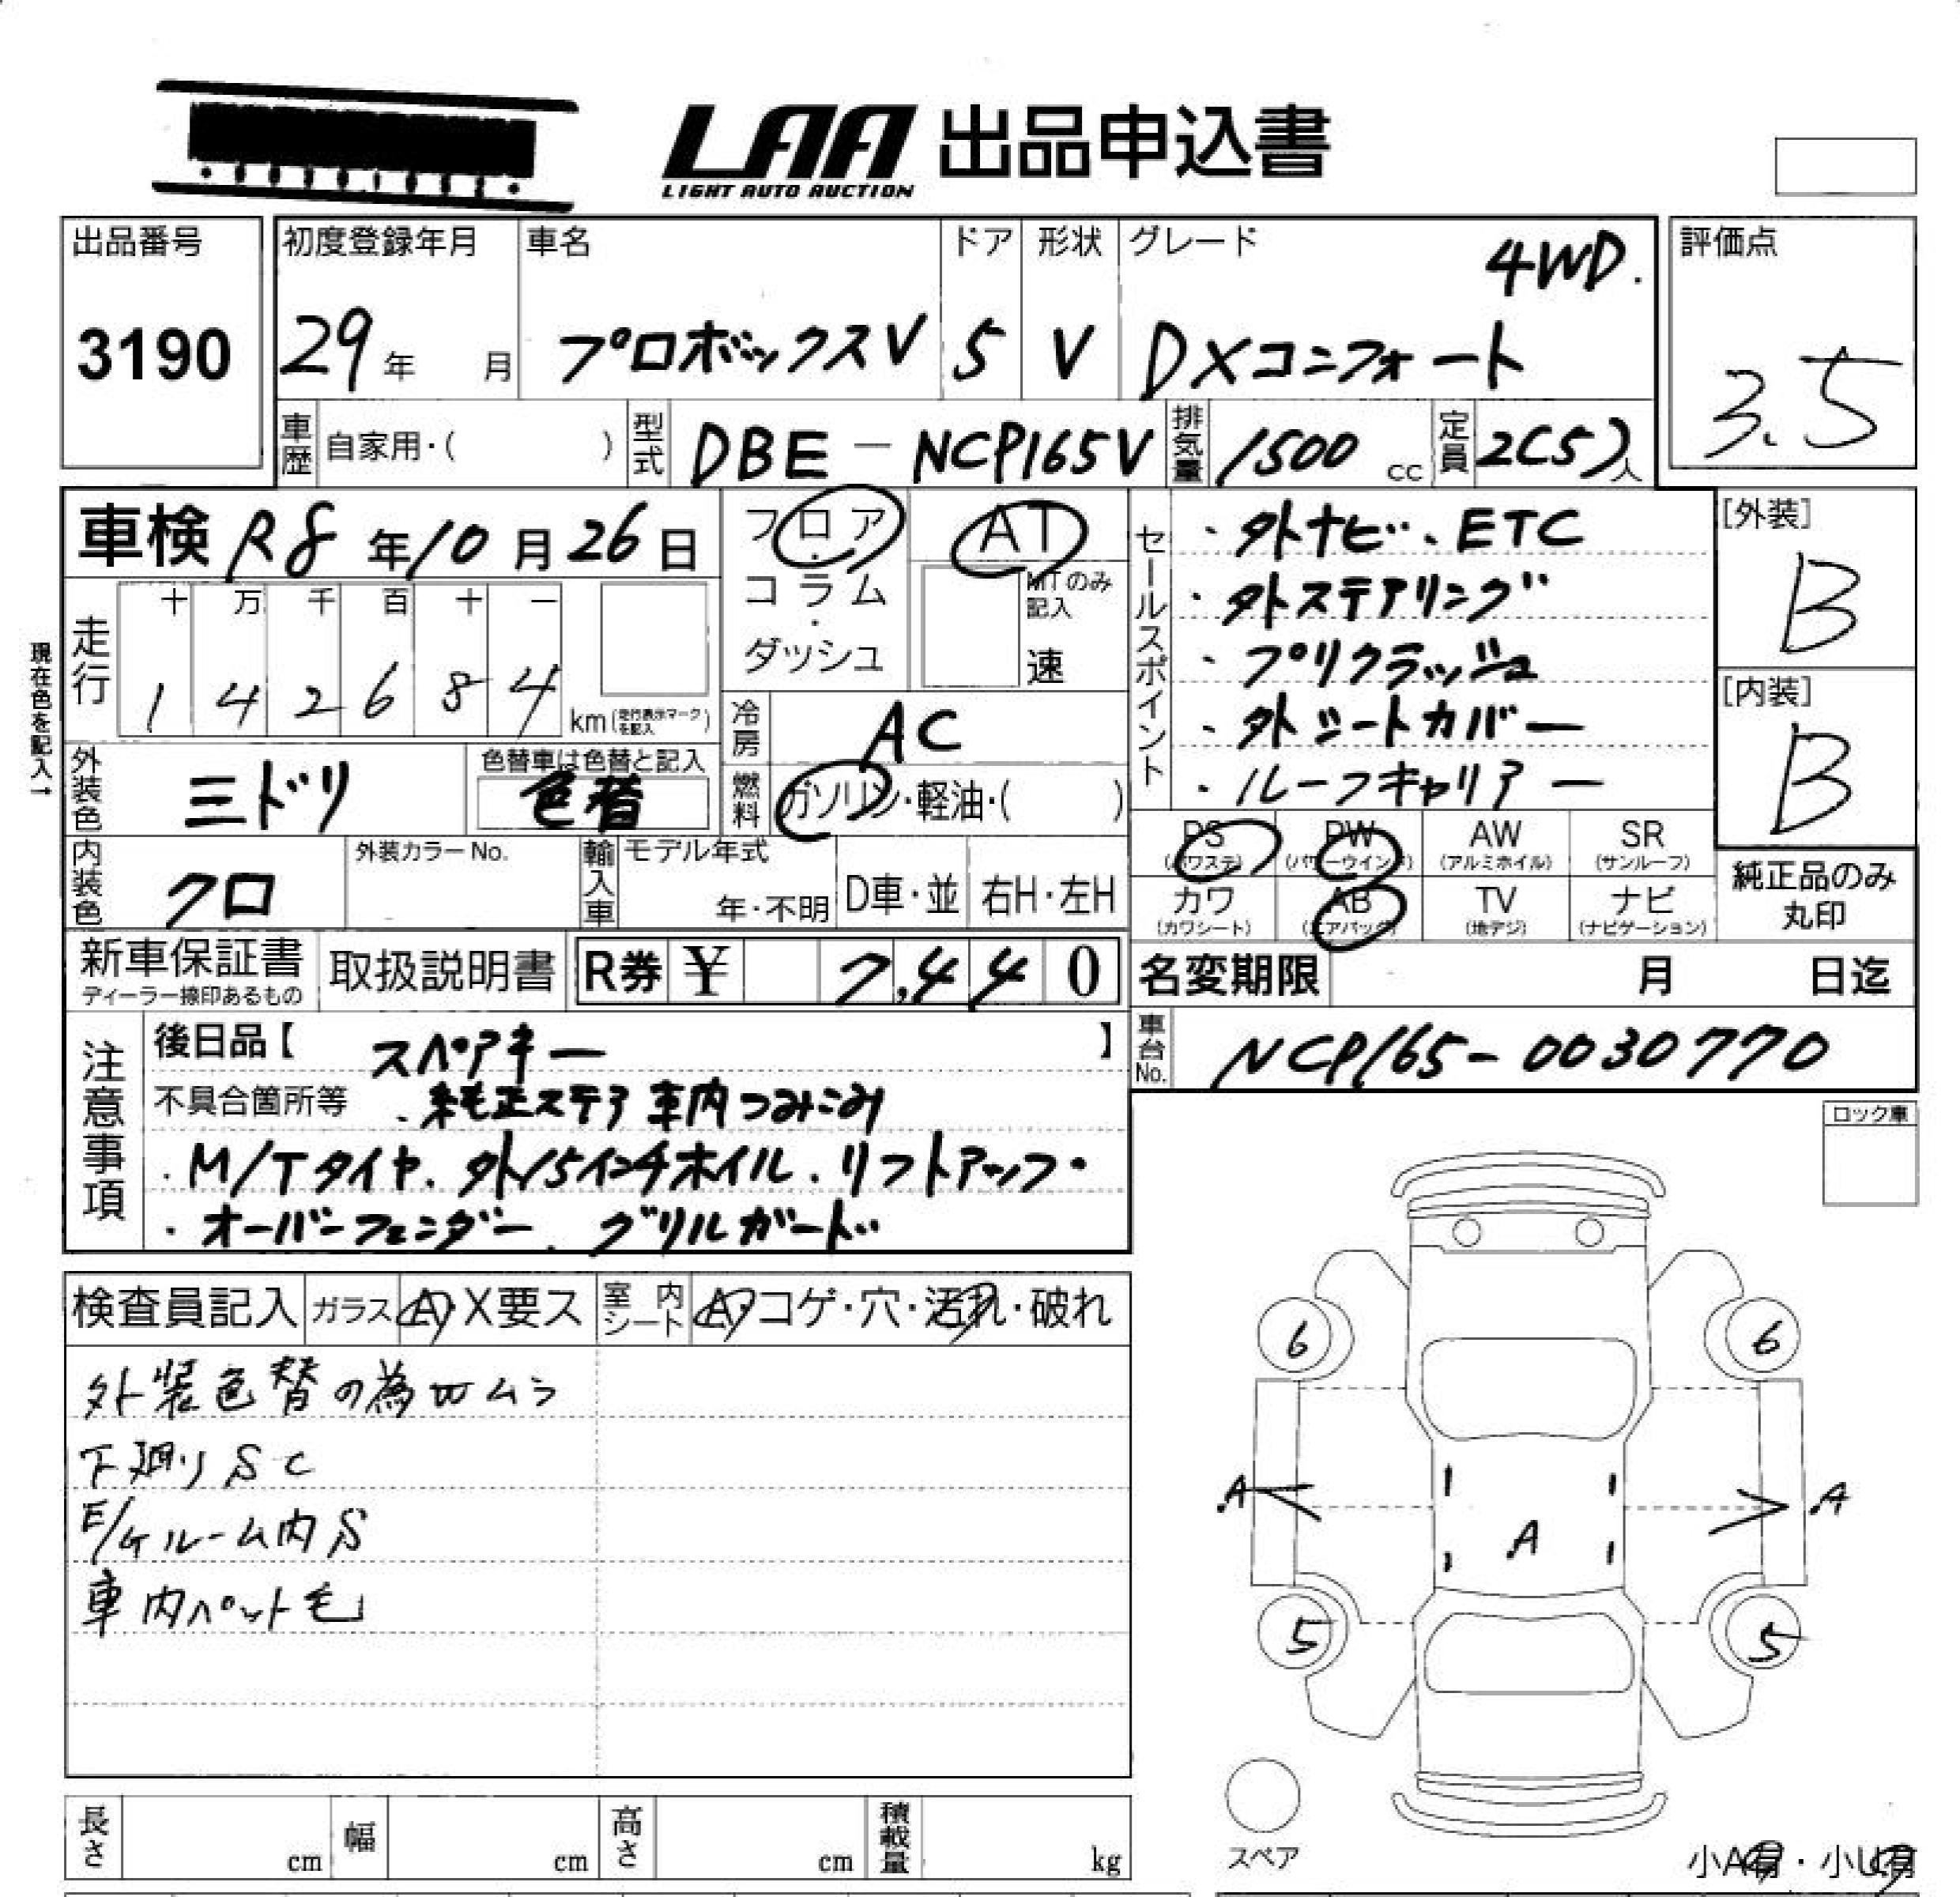 LAA 出品申込書
LIGHT AUTO AUCTION
出品番号
3190
初度登録年月
29年 月
車名
プロボックスV
ドア
5
形状
V
グレード
4WD.
DXコンフォート
評価点
3.5
車歴
自家用・( )
型式
DBE-NCP165V
排気量
1500 cc
定員
2(5)人
車検 R8年10月26日
フロア・コラム・ダッシュ
AT
MTのみ記入
速
セールスポイント
・外ナビ、ETC
・外ステアリング
・プリクラッシュ
・外シートカバー
・ルーフキャリアー
[外装]
B
[内装]
B
現在色を記入→
走行
十 万 千 百 十 一
1 4 2 6 8 4 km(走行表示マークを記入)
冷房
AC
外装色
ミドリ
色替車は色替と記入
色替
燃料
ガソリン・軽油・( )
内装色
クロ
外装カラーNo.
輸入車
モデル年式
年・不明
D車・並
右H・左H
PS (パワステ)
PW (パワーウインド)
AW (アルミホイル)
SR (サンルーフ)
カワ (カワシート)
AB (エアバッグ)
TV (地デジ)
ナビ (ナビゲーション)
純正品のみ丸印
新車保証書
ディーラー捺印あるもの
取扱説明書
R券 ¥ 7,440
名変期限 月 日迄
車台No.
NCP165-0030770
注意事項
後日品【 スペアキー 】
不具合箇所等 ・純正ステア車内つみこみ
・M/Tタイヤ、外15インチホイル、リフトアップ・
・オーバーフェンダー、グリルガード
ロック車
検査員記入
ガラス A・X要ス
室内シート A・コゲ・穴・汚れ・破れ
外装色替の為
下廻りSC
E/Gルーム内S
車内ペット毛
6 6
A A
A
5 5
スペア
小A有・小U有
長さ cm
幅 cm
高さ cm
積載量 kg